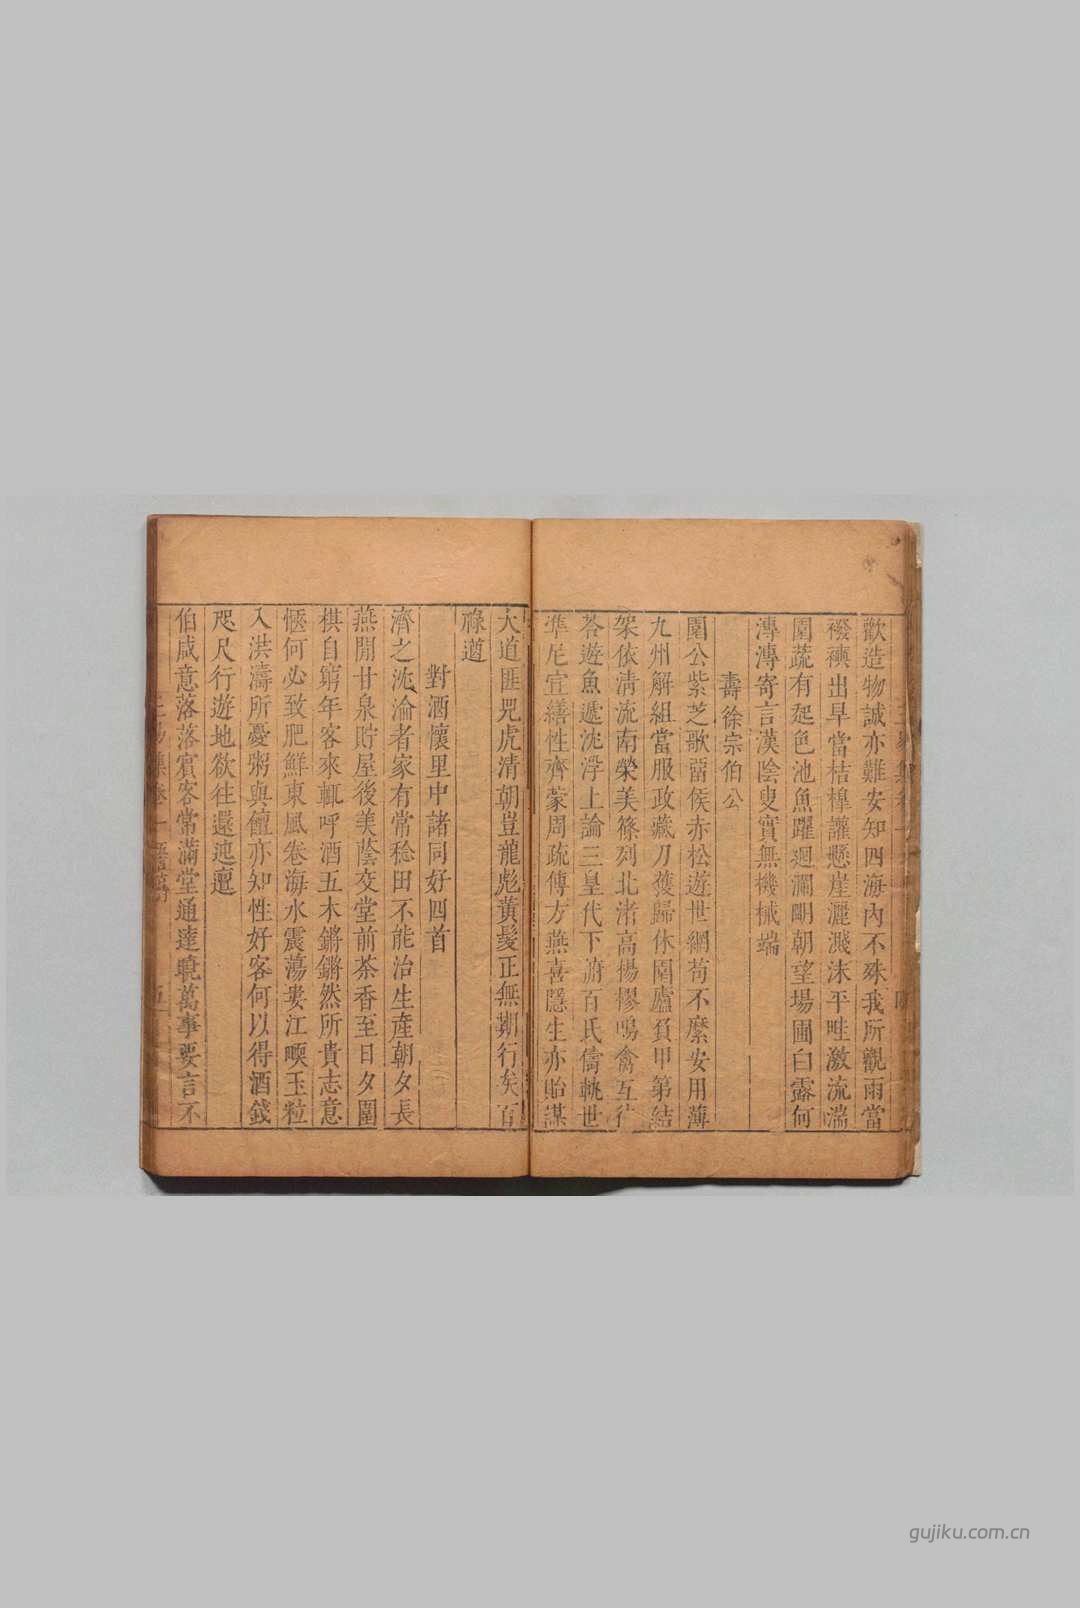 歡造物誠亦難安知四海內不殊我所觀雨當
襏襫出旱當桔橰讙懸崖灑濺沫平畦激流湍
園蔬有起色池魚躍迴瀾剛朝望場圃白露何
漙漙寄言漢陰叟實無機械端
壽徐宗伯公
園公紫芝歌留侯赤松遊世網苟不縻安用薄
九州解組當服政藏刀獲歸休園廬負甲第結
架依清流南榮美篠列北渚高楊樛鳴禽互往
荅遊魚遞沈浮上論三皇代下術百氏儔軌世
準尼宣繕性齊蒙周疏傳方燕喜隱生亦貽謀
大道匪兕虎清朝豈龍彪黃髮正無期行矣百
祿遒
對酒懷里中諸同好四首
濟之沈淪者家有常稔田不能治生產朝夕長
燕閒甘泉貯屋後美蔭交堂前茶香至日夕圍
棋自窮年客來輒呼酒五木鏘鏘然所貴志意
愜何必致肥鮮東風卷海水震蕩婁江喫玉粒
入洪濤所憂粥與饘亦知性好客何以得酒錢
咫尺行遊地欲往還迍邅
伯咸意落落賓客常滿堂通達曉萬事要言不
三易集卷一
五
gujiku.com.cn